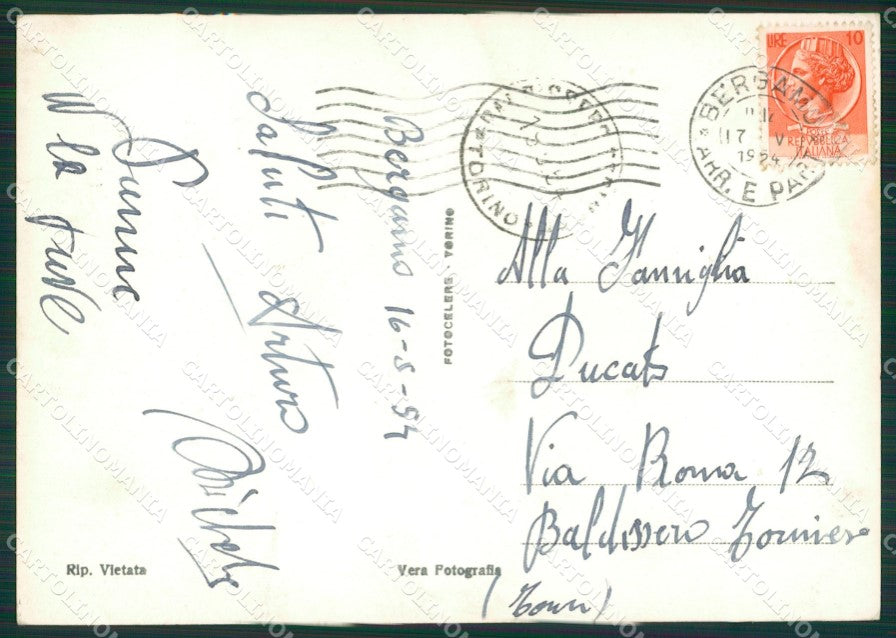 Bergamo 16-5-54
Saluti
Arturo
W la
LIRE 10
REPUBBLICA
ITALIANA
BERGAMO
17 V
1954
ARR. E PAR
TORINO
FOTOCELERE - TORINO
Alla Famiglia
Ducato
Via Roma 12
Baldissero Torinese
(Torino)
Rip. Vietata
Vera Fotografia
CARTOLINOMANIA